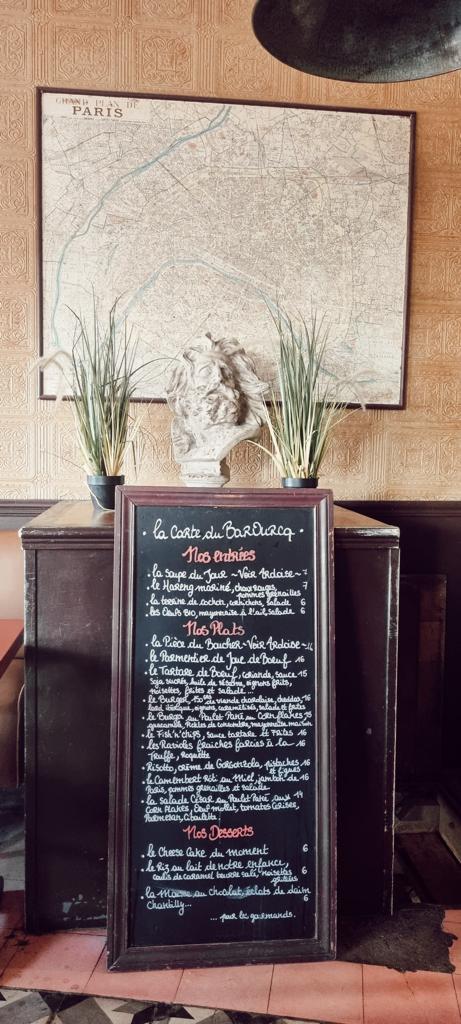 GRAND PLAN DE
PARIS
• la Carte du BarOurcq •
Nos entrées
• la Soupe du Jour ~ Voir Ardoise ~ 7
• le Hareng mariné, choux rouges, 7
pommes grenailles
• la terrine de cochon, cornichons, salade 6
• les Oeufs BIO, mayonnaise à l'ail, salade 6
Nos Plats
• la Pièce du Boucher ~ Voir Ardoise ~
• le Parmentier de Joue de Boeuf 16
• le Tartare de Boeuf, coriande, sauce 15
soja sucrée, huile de sésame, oignons frits,
noisettes, frites et salade...
• le Burger 150grs de viande charolaise, cheddar, 16
lard ibérique, oignons caramélisés, salade et frites
• le Burger au Poulet Pané au Corn flakes 15
guacamole, Pickles de concombre, mayonnaise maison
• le Fish'n'chips, sauce tartare et frites 16
• les Ravioles fraîches farcies à la 16
Truffe, Roquette
• Risotto, crème de Gorgonzola, pistaches 16
et figues
• le Camembert Rôti au Miel, jambon de 16
Paris, pommes grenailles et salade
• la salade César au Poulet Pané aux 14
Corn Flakes, Oeuf mollet, tomates Cerises,
Parmesan, Ciboulette
Nos Desserts
• le Cheese Cake du moment 6
• le Riz au lait de notre enfance, 6
coulis de caramel beurre salé, noisettes
grillées
• la Mousse au chocolat, éclats de daim 6
Chantilly...
... pour les gourmands.